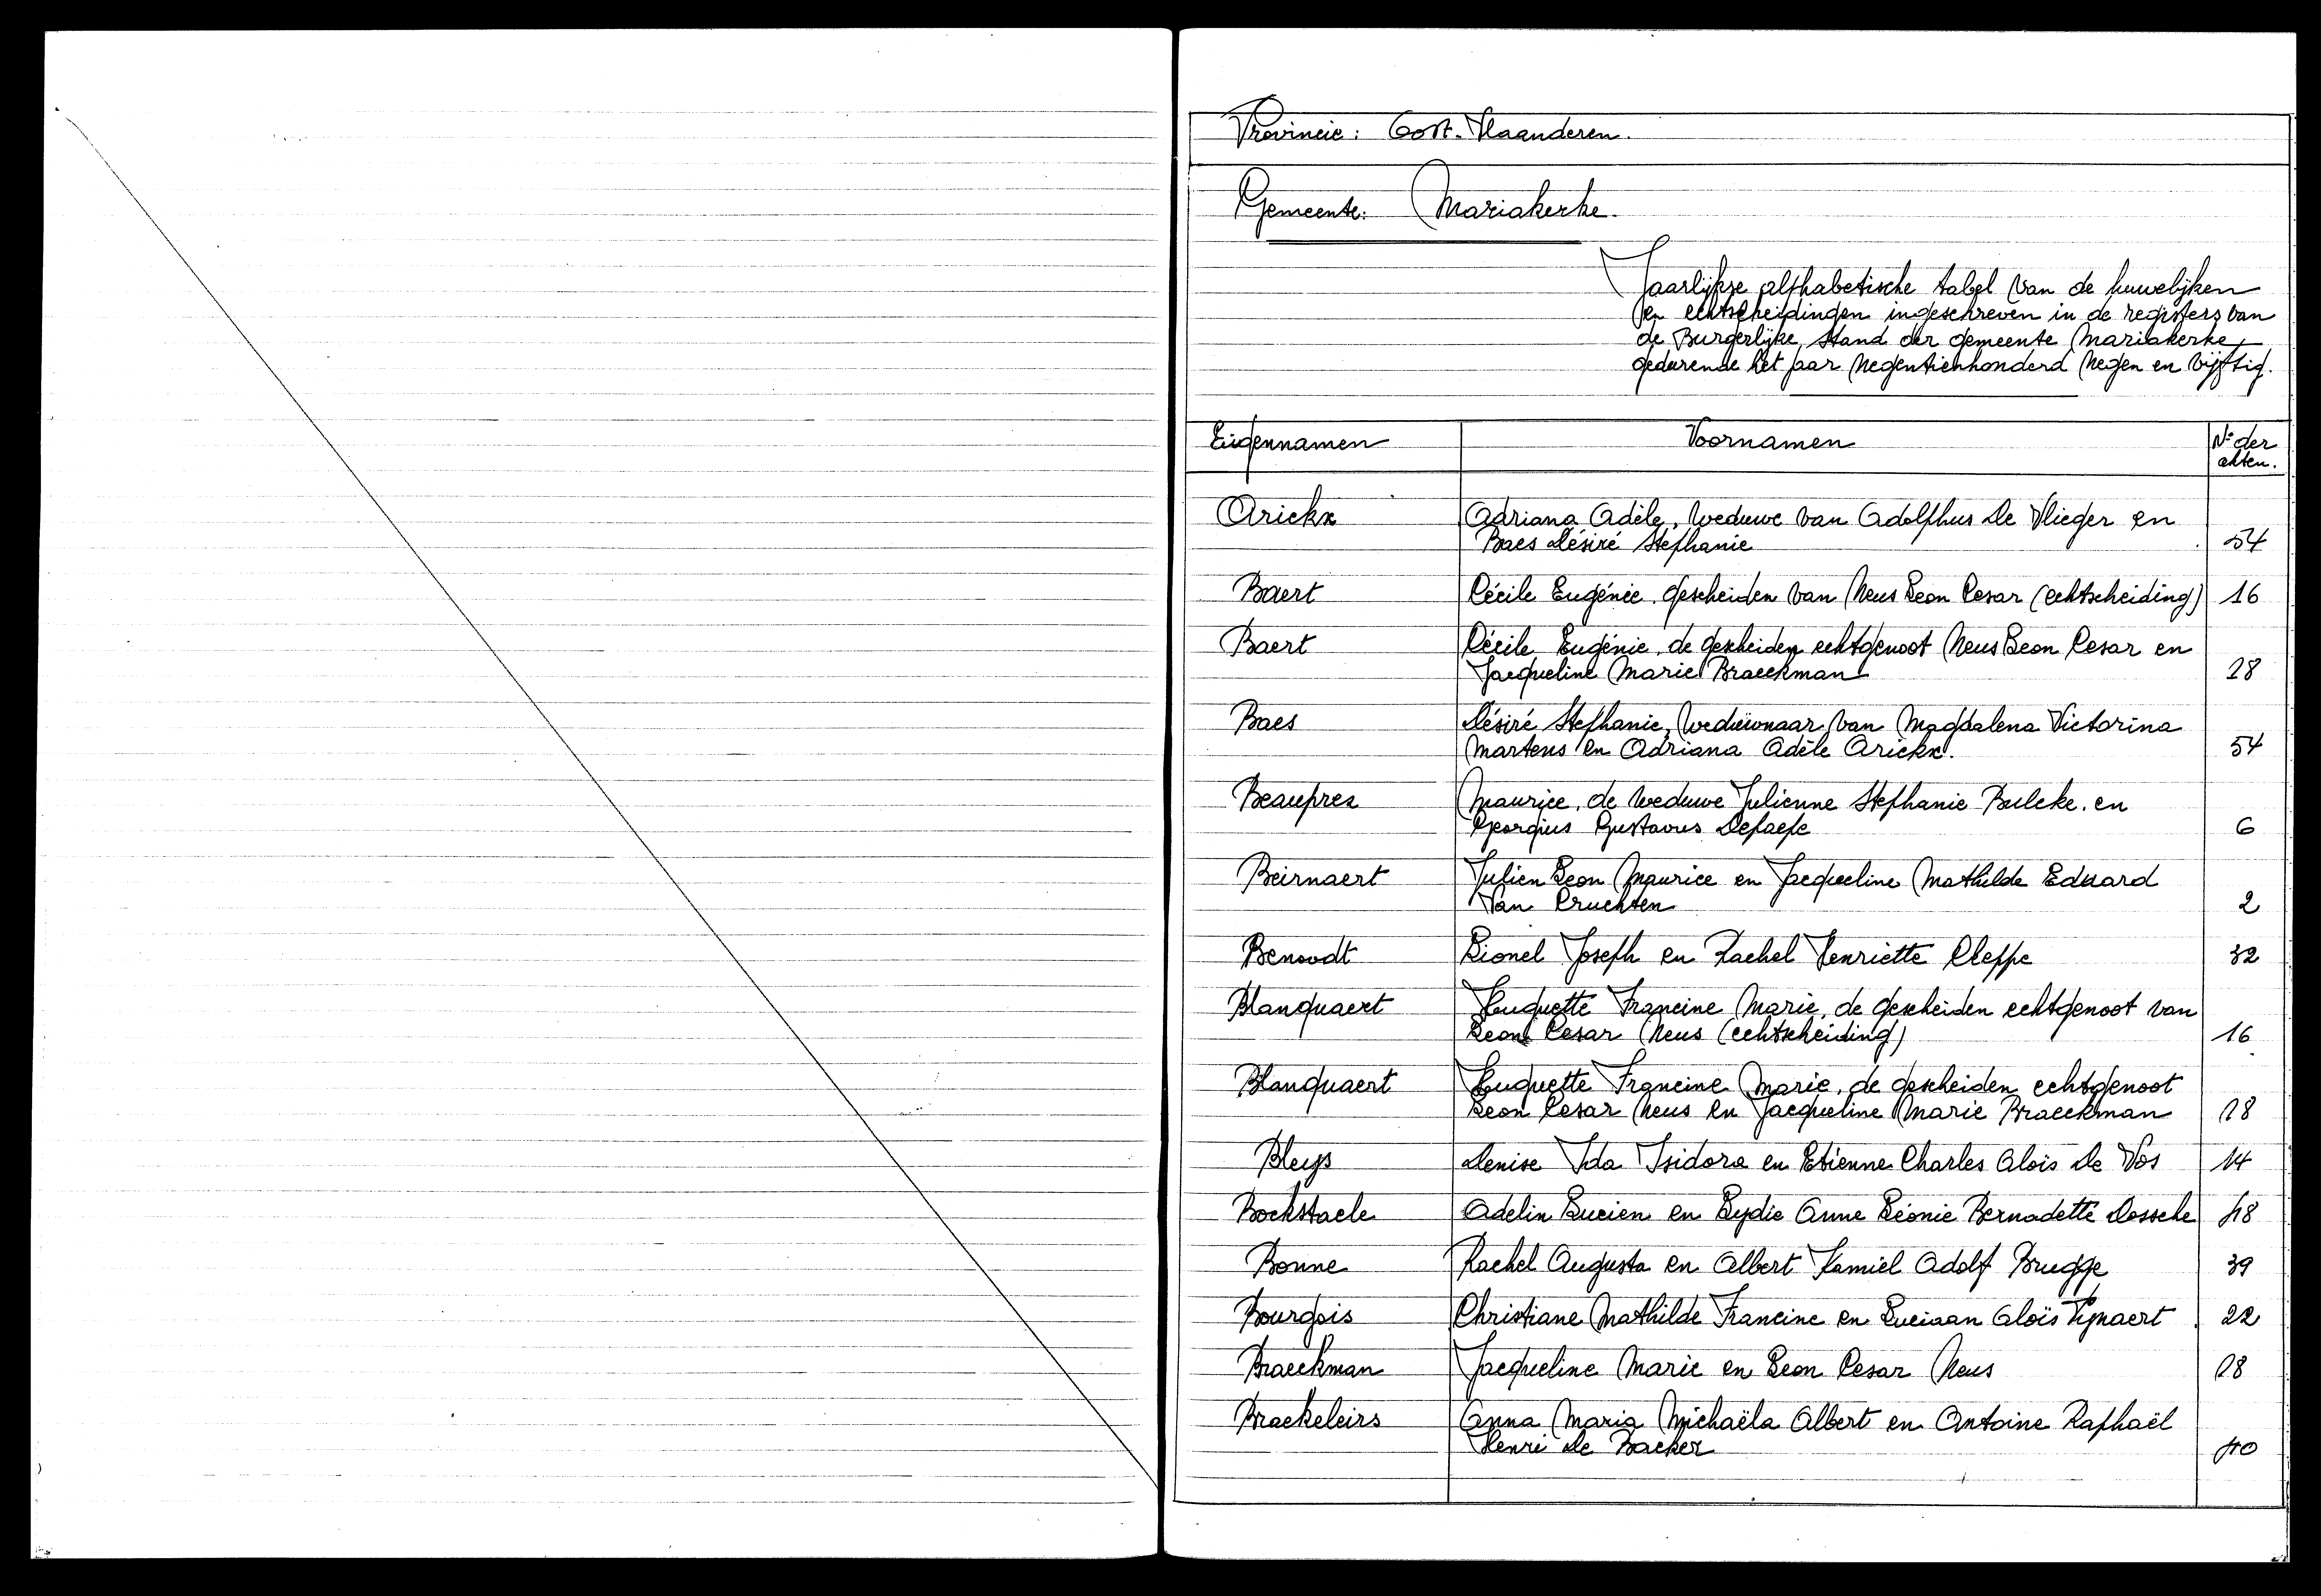 Provincie: Oost-Vlaanderen.
Gemeente: Mariakerke.
Jaarlijkse alphabetische tabel van de huwelijken
en echtscheidingen ingeschreven in de registers van
de Burgerlijke Stand der gemeente Mariakerke
gedurende het jaar negentienhonderd negen en vijftig.
Eigennamen Voornamen Nr der akten.
Arickx Adriana Adèle, weduwe van Adolphus De Vlieger en
Baes Désiré Stephanie 54
Baert Cécile Eugénie, gescheiden van Neus Leon Cesar (echtscheiding) 16
Baert Cécile Eugénie, de gescheiden echtgenoot Neus Leon Cesar en
Jacqueline Marie Braeckman 18
Baes Désiré Stephanie, weduwnaar van Magdalena Victorina
Martens en Adriana Adèle Arickx. 54
Beauprez Maurice, de weduwe Julienne Stephanie Bulcke, en
Georgius Gustavus Depaepe 6
Beirnaert Julien Leon Maurice en Jacqueline Mathilde Eduard
Van Cruchten 2
Benoodt Lionel Joseph en Rachel Henriette Cleppe 32
Blanquaert Huguette Francine Marie, de gescheiden echtgenoot van
Leon Cesar Neus (echtscheiding) 16
Blanquaert Huguette Francine Marie, de gescheiden echtgenoot
Leon Cesar Neus en Jacqueline Marie Braeckman 18
Bleys Denise Ida Isidora en Etienne Charles Aloïs De Vos 14
Bockstaele Adelin Lucien en Lydie Anne Léonie Bernadette Dossche 48
Bonne Rachel Augusta en Albert Kamiel Adolf Brugge 39
Bourgois Christiane Mathilde Francine en Luciaan Aloïs 22
Braeckman Jacqueline Marie en Leon Cesar Neus 18
Braekeleirs Anna Maria Michaëla Albert en Antoine Raphaël
Henri De Backer 40